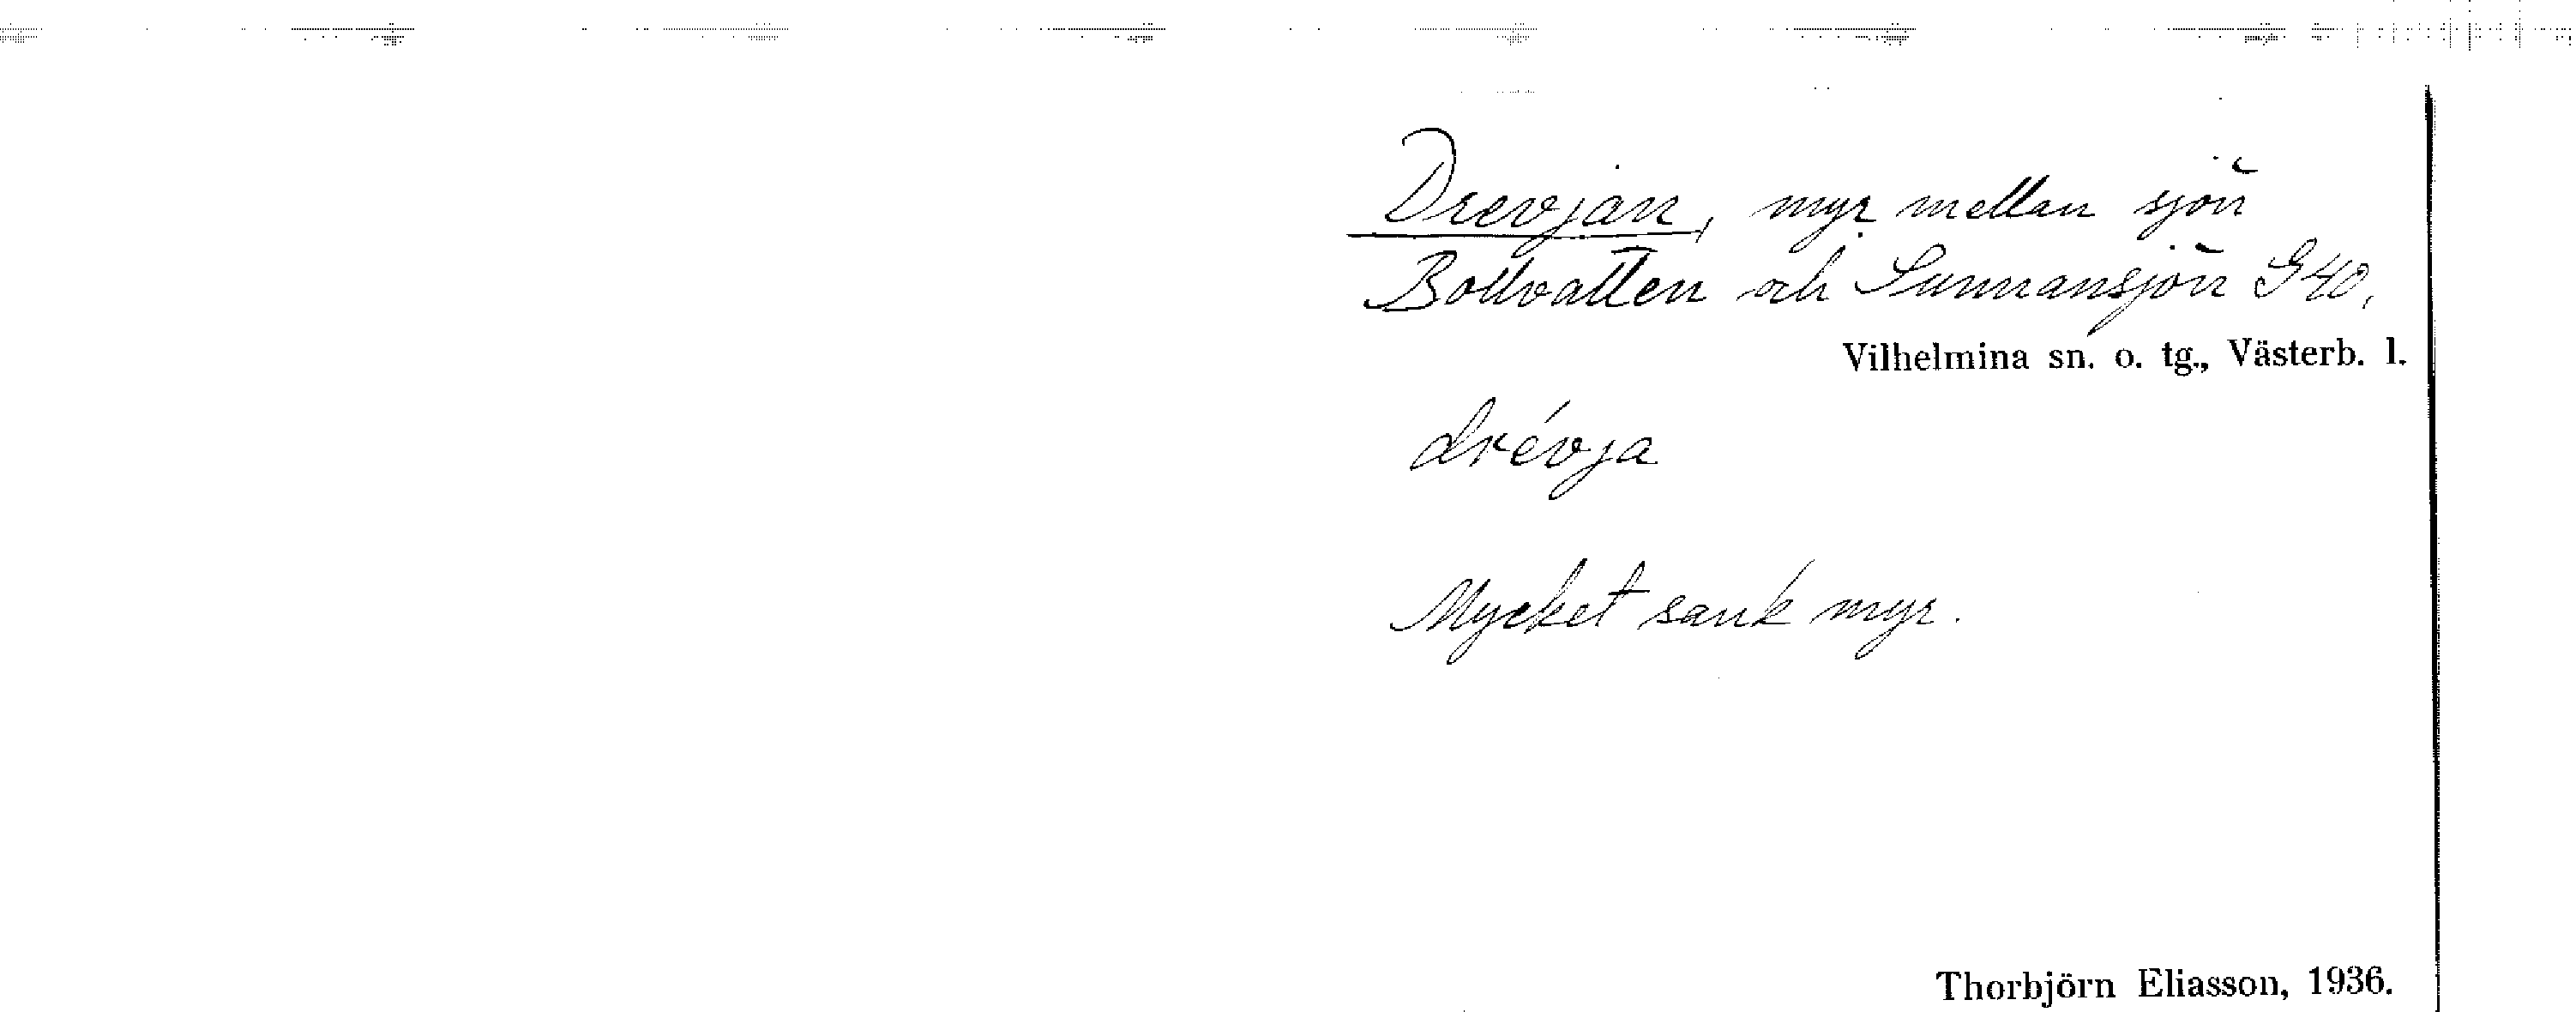 Drevjan, myr mellan sjön
Bollvatten och Sunnansjön G40,
Vilhelmina sn. o. tg., Västerb. l.
drévja
Mycket sank myr.
Thorbjörn Eliasson, 1936.